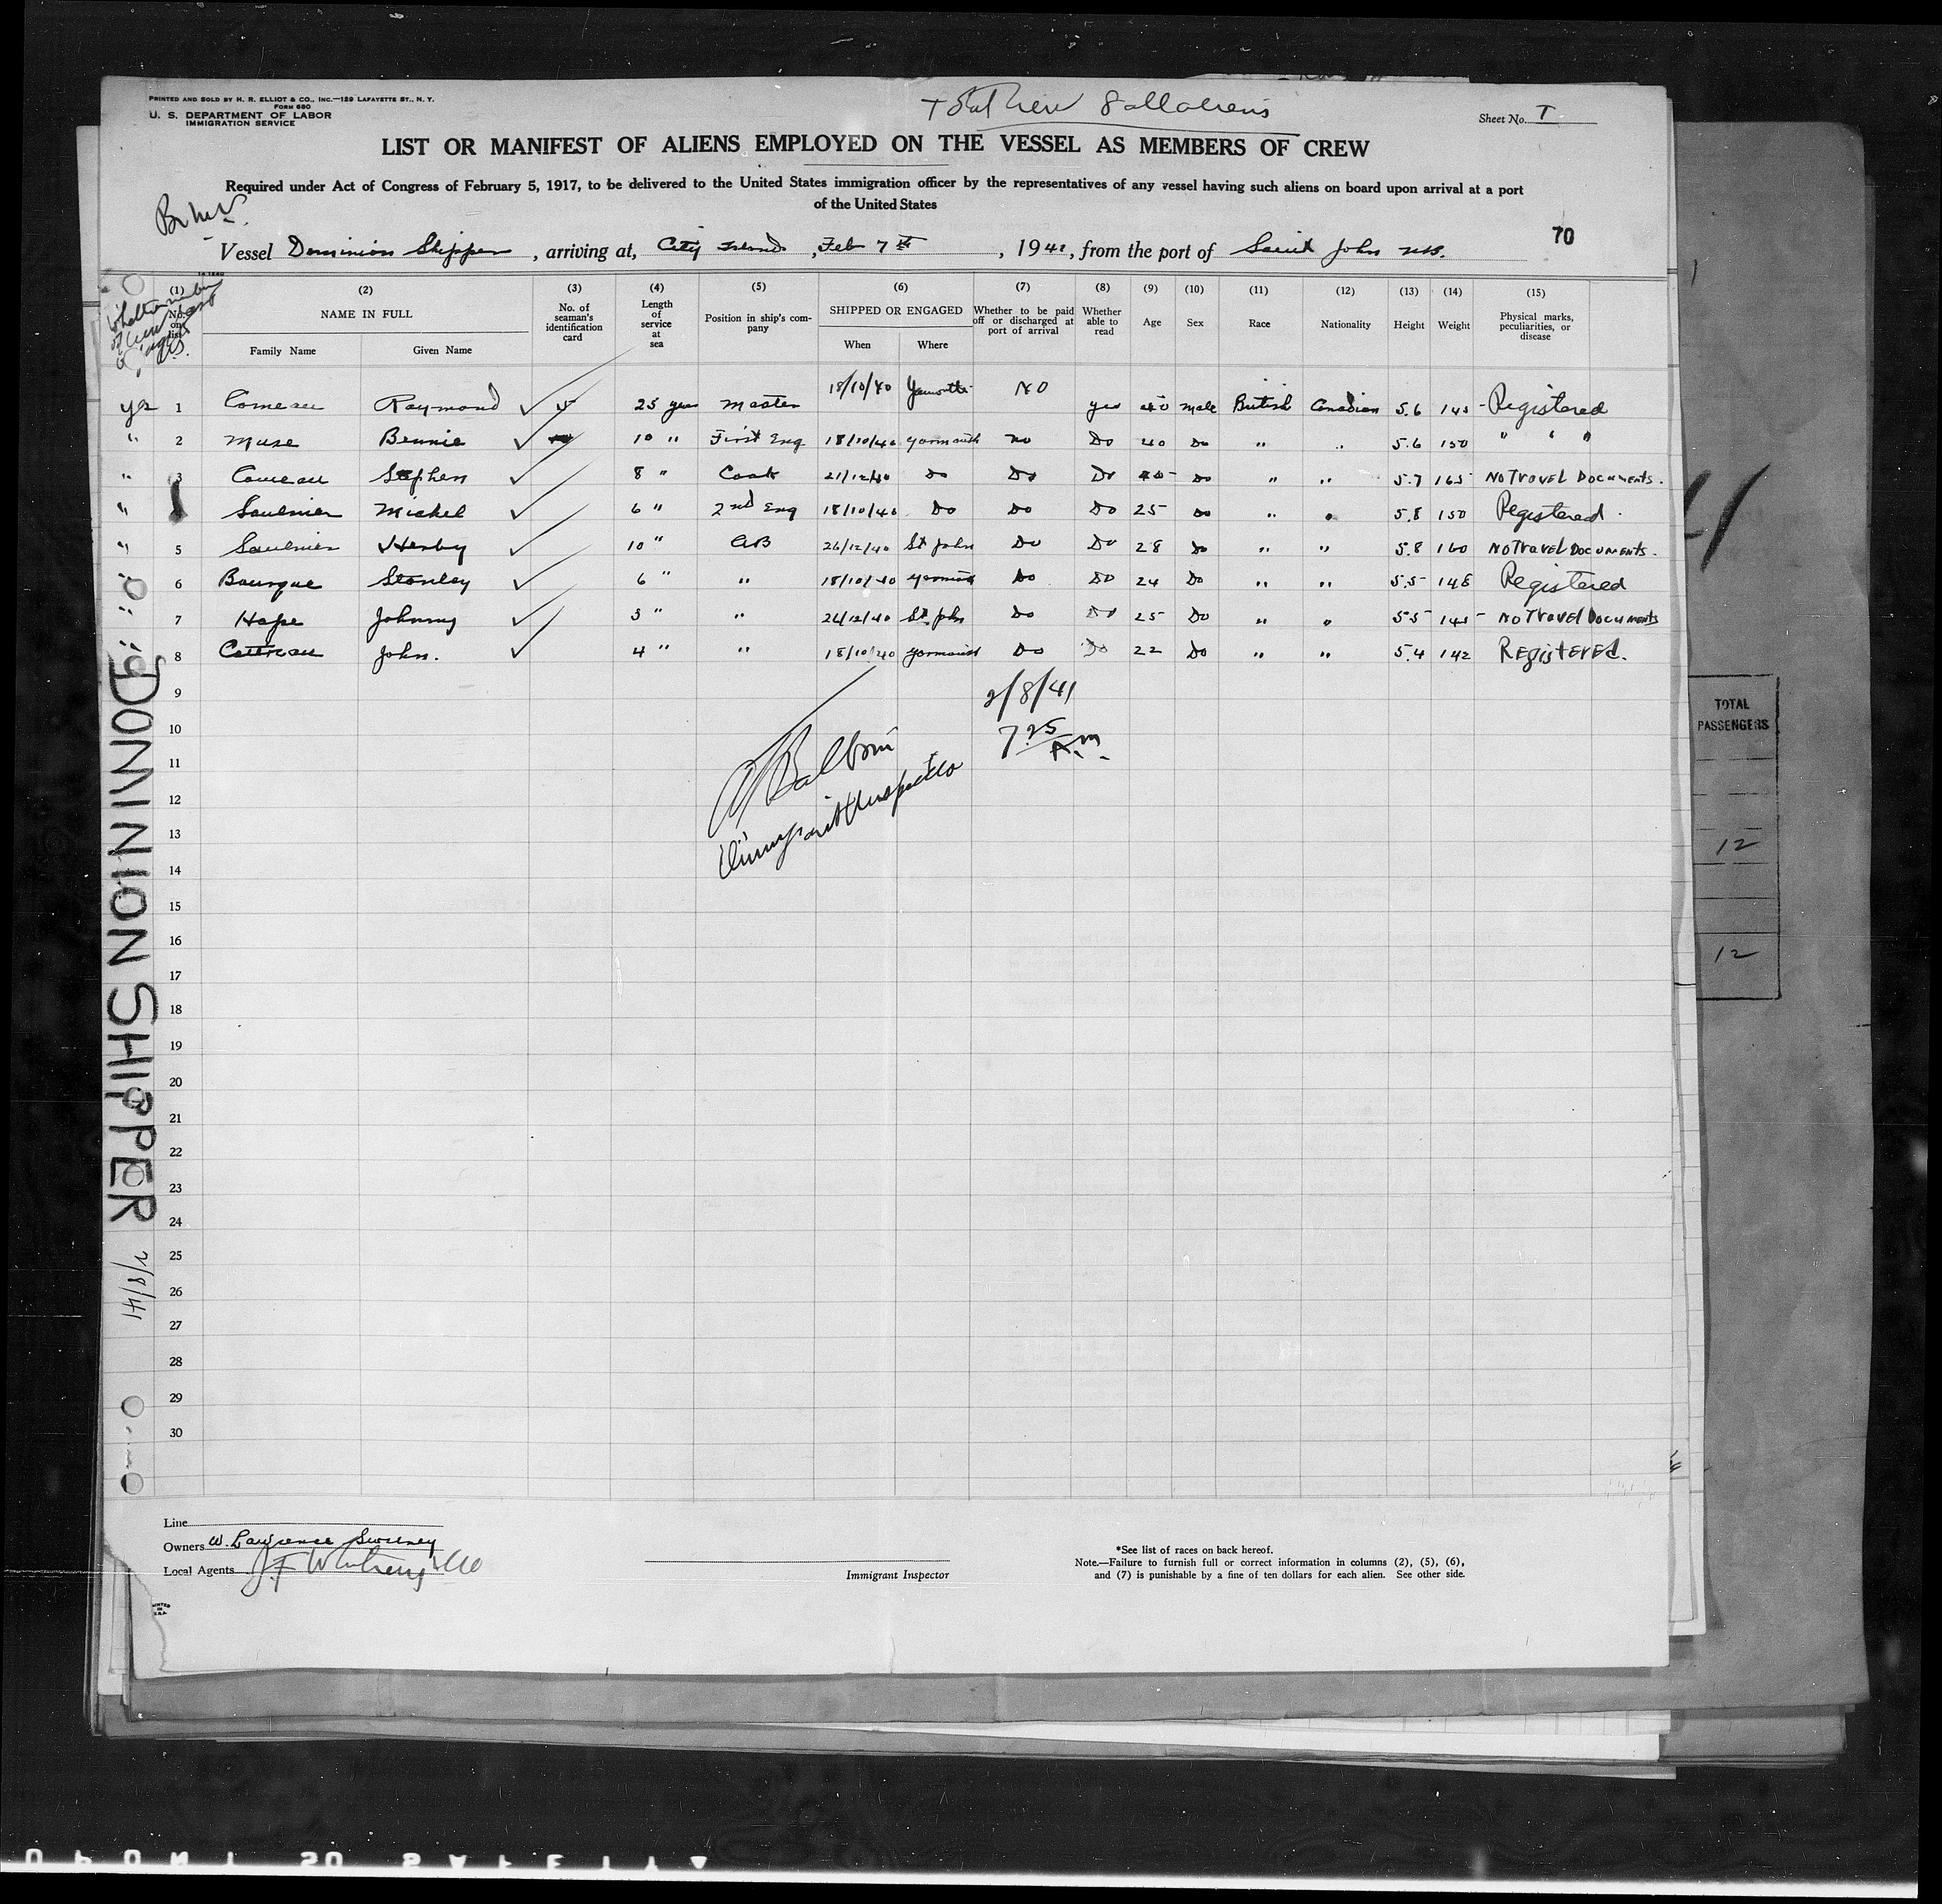 PRINTED AND SOLD BY H. R. ELLIOT & CO., INC.—129 LAFAYETTE ST., N. Y.
FORM 680
U. S. DEPARTMENT OF LABOR
IMMIGRATION SERVICE
Total Crew 8 all aliens
Sheet No. I
LIST OR MANIFEST OF ALIENS EMPLOYED ON THE VESSEL AS MEMBERS OF CREW
Required under Act of Congress of February 5, 1917, to be delivered to the United States immigration officer by the representatives of any vessel having such aliens on board upon arrival at a port
of the United States
70
Vessel Dominion Shipper, arriving at, City Island, Feb 7th, 1941, from the port of Saint John NB.
(1) (2) (3) (4) (5) (6) (7) (8) (9) (10) (11) (12) (13) (14) (15)
No. on list NAME IN FULL No. of seaman's identification card Length of service at sea Position in ship's company SHIPPED OR ENGAGED Whether to be paid off or discharged at port of arrival Whether able to read Age Sex Race Nationality Height Weight Physical marks, peculiarities, or disease
Family Name Given Name When Where
yes 1 Comeau Raymond 25 years Master 18/10/40 Yarmouth NO yes 40 male British Canadian 5.6 145 Registered
" 2 Muse Bennie 10 " First Eng 18/10/40 Yarmouth no Do 40 Do " " 5.6 150 " " "
" 3 Comeau Stephen 8 " Cook 21/12/40 Do Do Do 40 Do " " 5.7 165 NO Travel Documents.
" Saulnier Mickel 6 " 2nd Eng 18/10/40 Do Do Do 25 Do " " 5.8 150 Registered.
" 5 Saulnier Henby 10 " AB 26/12/40 St John Do Do 28 Do " " 5.8 160 NO Travel Documents.
" 6 Bourque Stanley 6 " " 18/10/40 Yarmouth Do Do 24 Do " " 5.5 148 Registered
" 7 Hape Johnny 3 " " 26/12/40 St John Do Do 25 Do " " 5.5 145 NO Travel Documents
" 8 Cottreau John. 4 " " 18/10/40 Yarmouth Do Do 22 Do " " 5.4 142 Registered.
9
10
11
12
13
14
15
16
17
18
19
20
21
22
23
24
25
26
27
28
29
30
2/8/41
7 25 A.m.
Balboni
Immigrant Inspector
DOMINION SHIPPER 2/8/41
TOTAL
PASSENGERS
12
12
Line
Owners W. Lawrence Sweeney
Local Agents J. F. Whitney & Co
Immigrant Inspector
*See list of races on back hereof.
Note.—Failure to furnish full or correct information in columns (2), (5), (6),
and (7) is punishable by a fine of ten dollars for each alien. See other side.
PRINTED
IN
U.S.A.